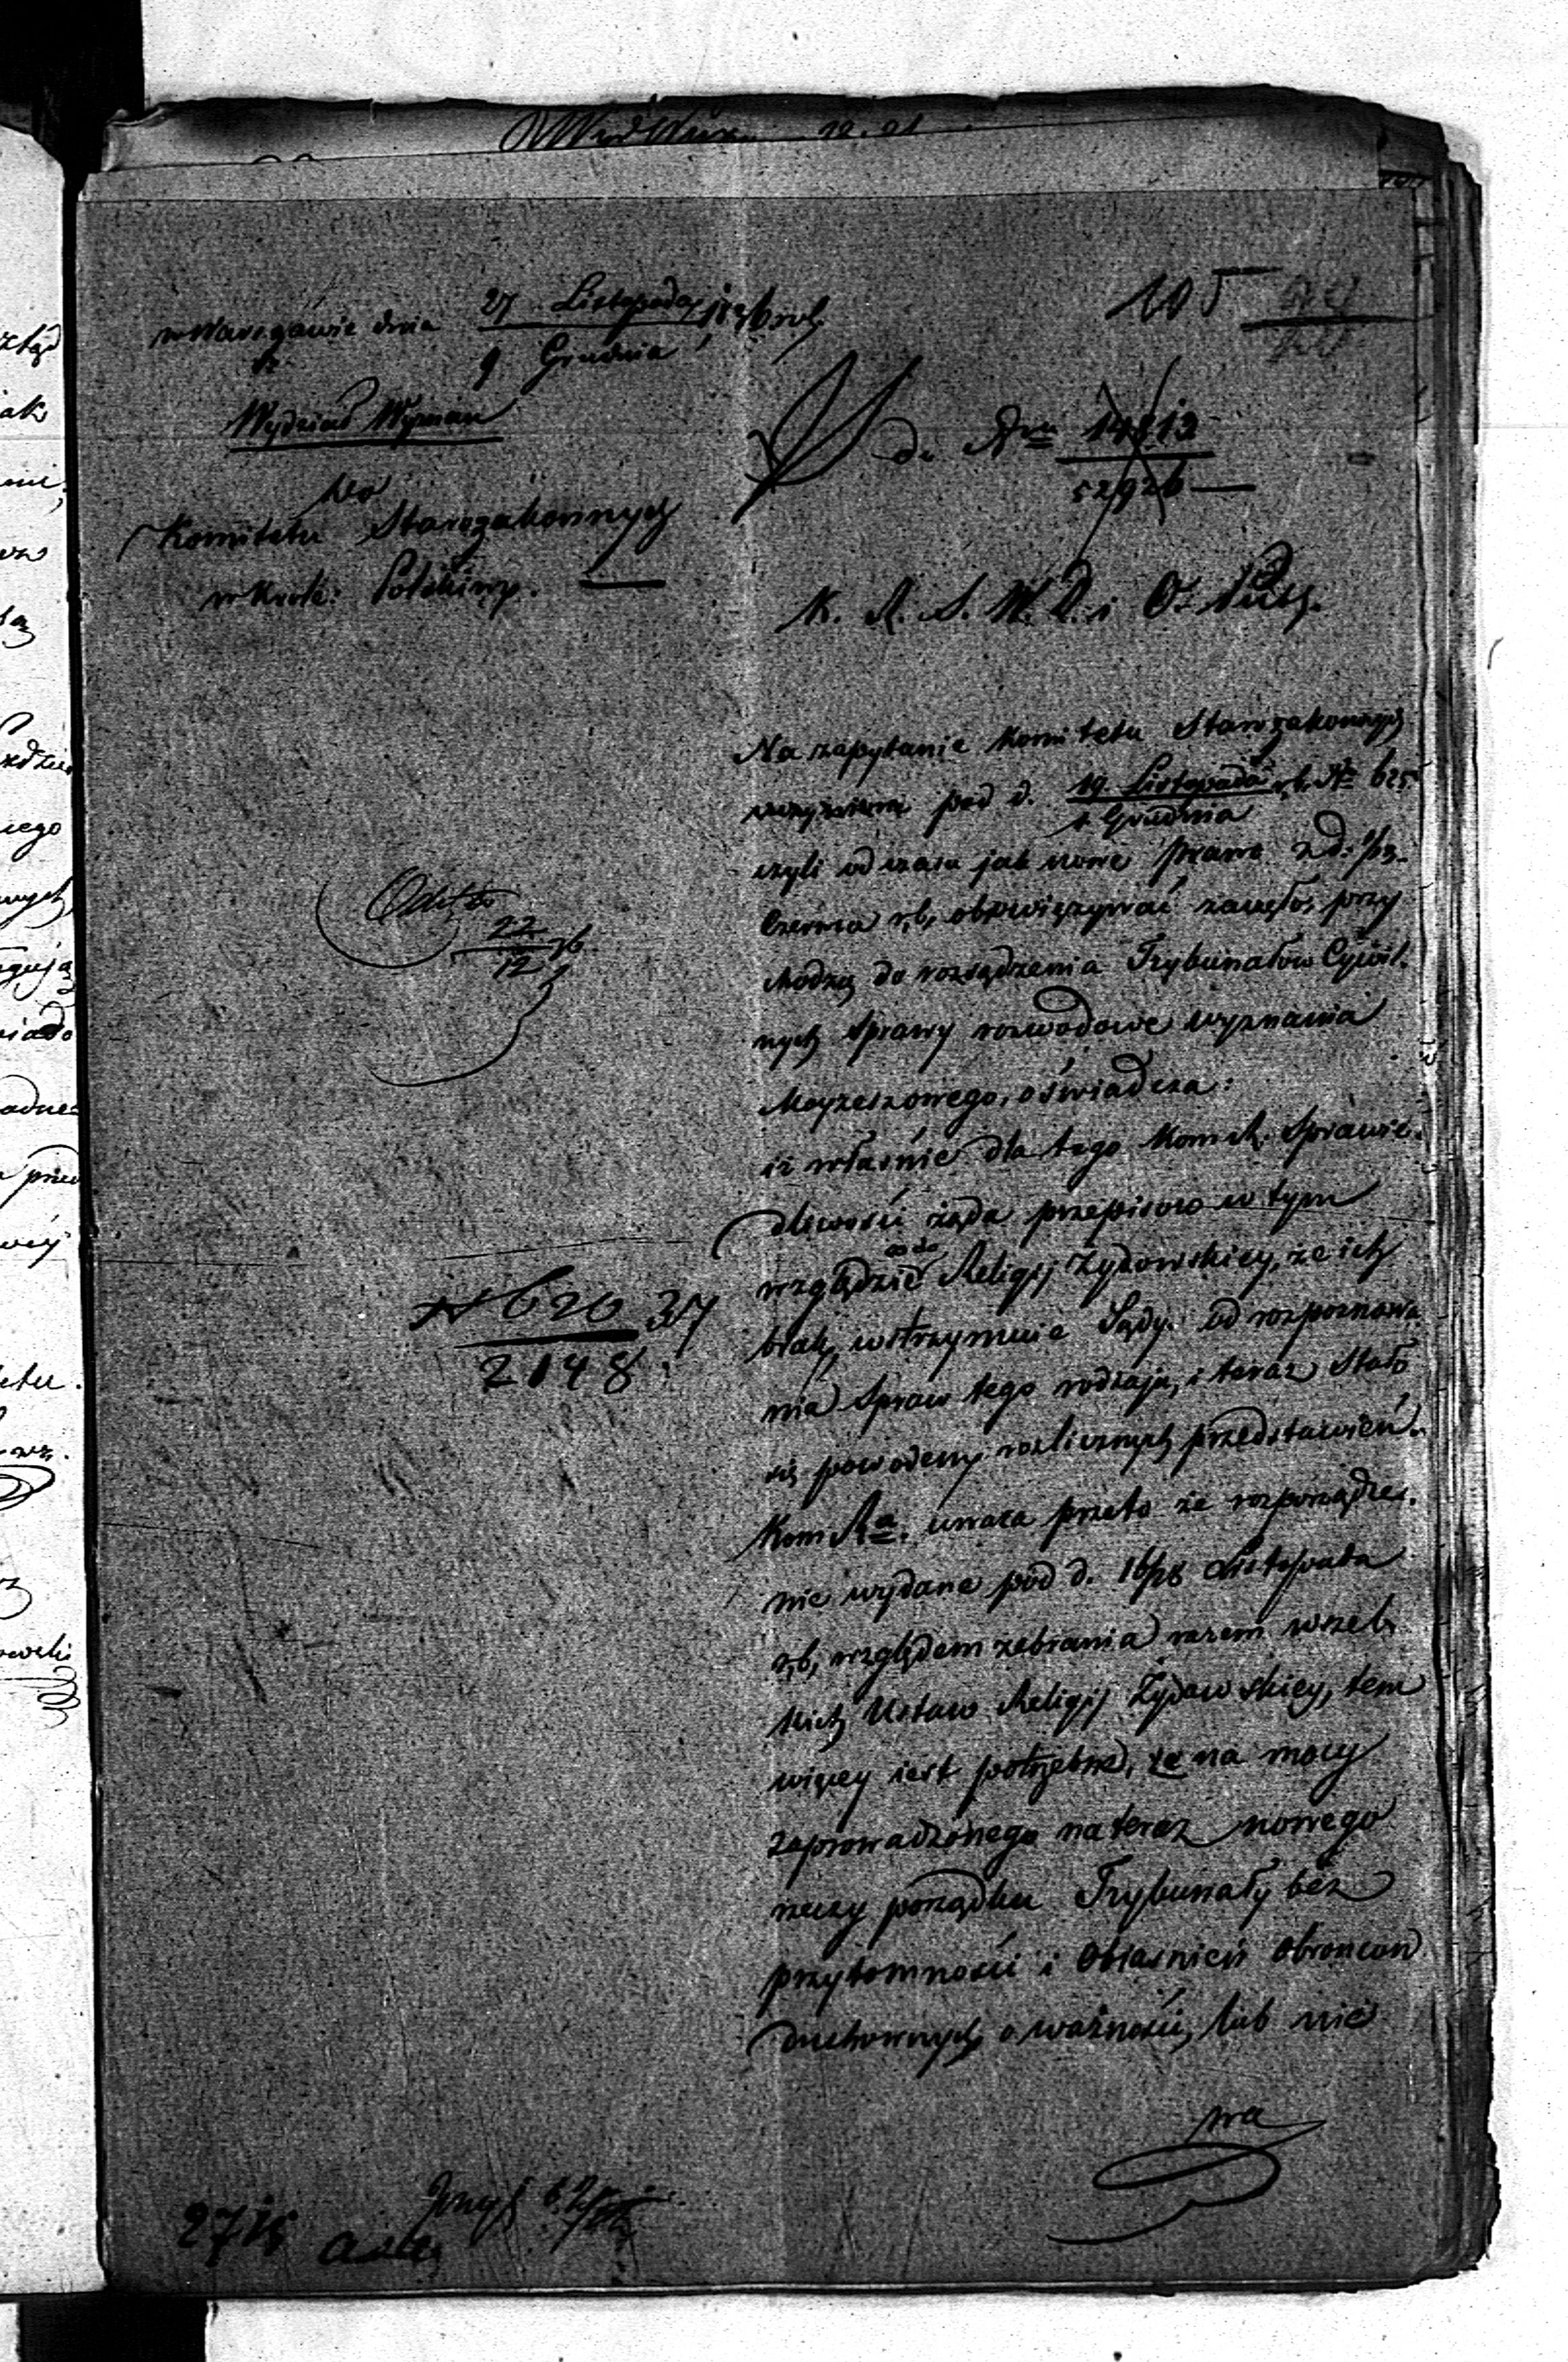 w Warszawie dnia 27 Listopada 1836 rok
9 Grudnia
Wydział Wyznań
Do
Komitetu Starozakonnych
w Król: Polskim.
105
do Nru 14813
52926
K. R. S. W. D. i O. Publ.
Na zapytanie Komitetu Starozakonnych
uczynione pod d. 19. Listopada r,b, Nr 625
1 Grudnia
czyli od czasu jak nowe prawo z d:
Czerwca r,b, obowiązywać zaczęło, przy
chodzą do rozsądzenia Trybunałów Cywil.
nych sprawy rozwodowe wyznania
Mojżeszowego, oświadcza:
iż właśnie dla tego Kom. R. Sprawie.
dliwości żąda przepisów w tym
względzie co do Religij Żydowskiey, że ich
brak, wstrzymuie Sądy od rozpoznawa
nia Spraw tego rodzaju, i teraz Stało
się powodem rozlicznych przedstawień.
Kom Ra. uważa przeto że rozporządze.
nie wydane pod d. 16/28 Listopada
r,b, względem zebrania razem wszel.
kich Ustaw Religij Żydowskiey, tem
więcey iest potrzebne, że na mocy
zaprowadzonego na teraz nowego
rzeczy porządku Trybunały bez
przytomności i Obiaśnień Obrońców
duchownych, o ważności, lub nie
wa
22
12
N 620 37
2148